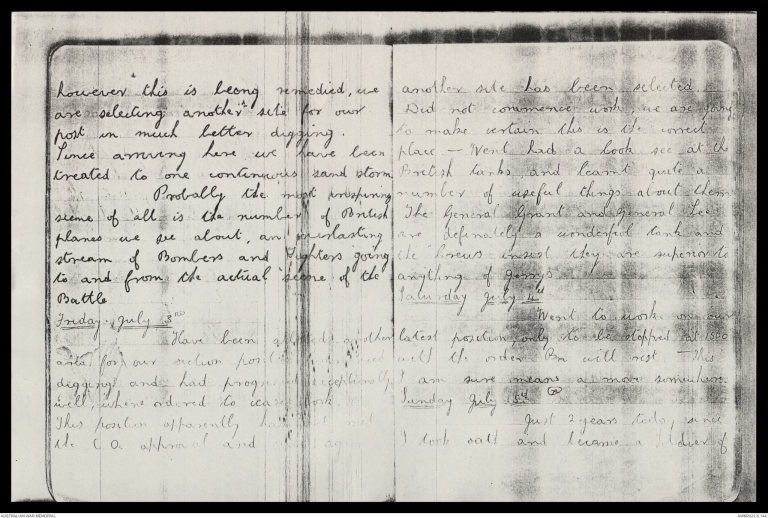 however this is being remedied, we
are selecting another site for our
post in much better digging.
Since arriving here we have been
treated to one continuous sand storm
Probally the most inspiring
scene of all is the number of British
planes we see about, an everlasting
stream of Bombers and Fighters going
to and from the actual scene of the
Battle
Friday July 3rd
Have been another
area for our section
digging and had exceptionally
well, where ordered to cease work
This position apparently
the C.O. approval and
another site has been selected.
Did not commence work, we are going
to make certain this is the correct
place — Went had a look see at the
British tanks and learnt quite a
number of useful things about them
The General Grant and General Lee
are definately a wonderful tank and
the crews insist they are superior to
anything of gerrys
Saturday July 4th
Went to work on our
latest position only to be stopped at 1500
with the order Bn will rest — This
I am sure means a move somewhere.
Sunday July 5th
Just 2 years today since
I took oath and became a soldier of
AUSTRALIAN WAR MEMORIAL